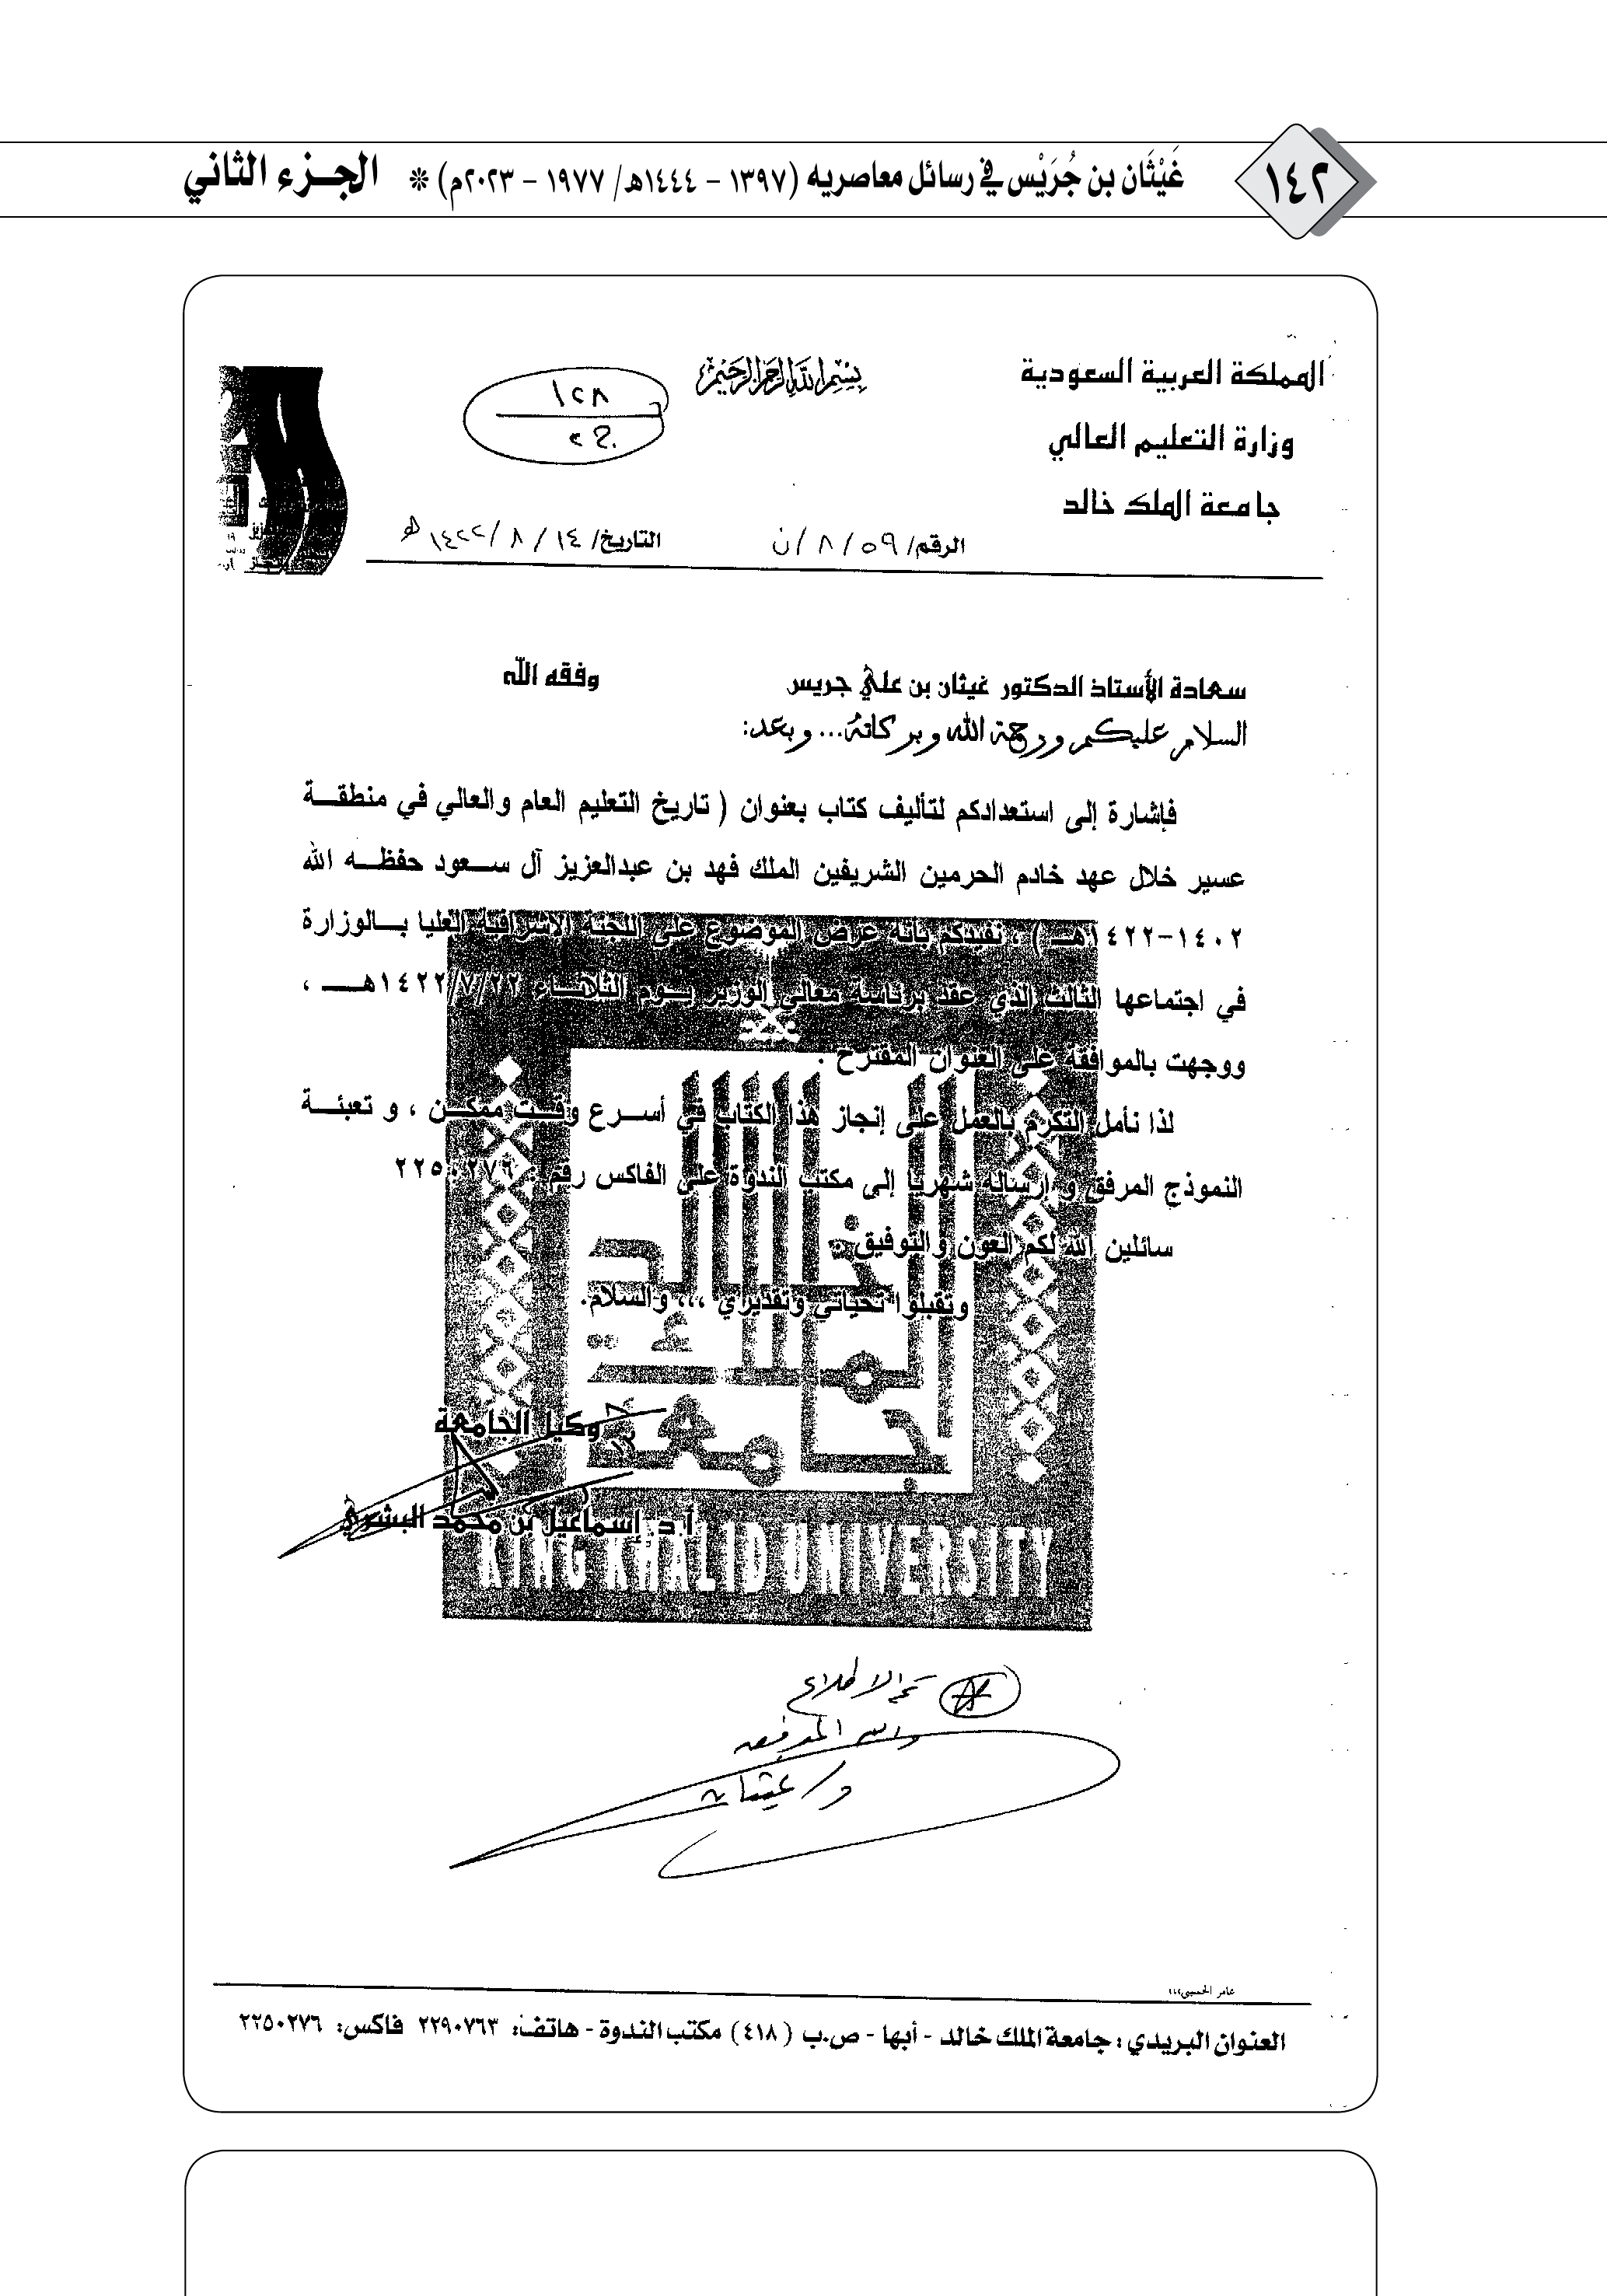 ١٤٢
غَيْثَان بن جُرَيْس في رسائل معاصريه (١٣٩٧ - ١٤٤٤هـ/ ١٩٧٧ - ٢٠٢٣م) ❊ الجـزء الثاني
المملكة العربية السعودية
بسم الله الرحمن الرحيم
١٢٨
وزارة التعليم العالي
جامعة الملك خالد
الرقم/ ٥٩ / ٨ / ن التاريخ/ ١٤ / ٨ / ١٤٢٢ هـ
سعادة الأستاذ الدكتور غيثان بن علي جريس وفقه الله
السلام عليكم ورحمة الله وبركاته... وبعد:
فإشارة إلى استعدادكم لتأليف كتاب بعنوان ( تاريخ التعليم العام والعالي في منطقـــة
عسير خلال عهد خادم الحرمين الشريفين الملك فهد بن عبدالعزيز آل ســعود حفظــه الله
١٤٠٢-١٤٢٢هـــ ) ، نفيدكم بأنه عرض الموضوع على اللجنة الاشرافية العليا بـــالوزارة
في اجتماعها الثالث الذي عقد برئاسة معالي الوزير يــوم الثلاثــاء ١٤٢٢/٧/٢٢هــــ ،
ووجهت بالموافقة على العنوان المقترح .
لذا نأمل التكرم بالعمل على إنجاز هذا الكتاب في أســرع وقــت ممكــن ، و تعبئــة
النموذج المرفق و إرساله شهريا إلى مكتب الندوة على الفاكس رقم : ٢٢٥٠٢٧٦
سائلين الله لكم العون والتوفيق ..
وتقبلوا تحياتي وتقديري ،،، والسلام.
وكيل الجامعة
أ.د. إسماعيل بن محمد البشري
جامعة
الملك
خالد
KING KHALID UNIVERSITY
تم الاطلاع
د/ غيثان
عامر الحسيني
العنوان البريدي : جامعة الملك خالد - أبها - ص.ب (٤١٨) مكتب الندوة - هاتف: ٢٢٩٠٧٦٣ فاكس: ٢٢٥٠٢٧٦